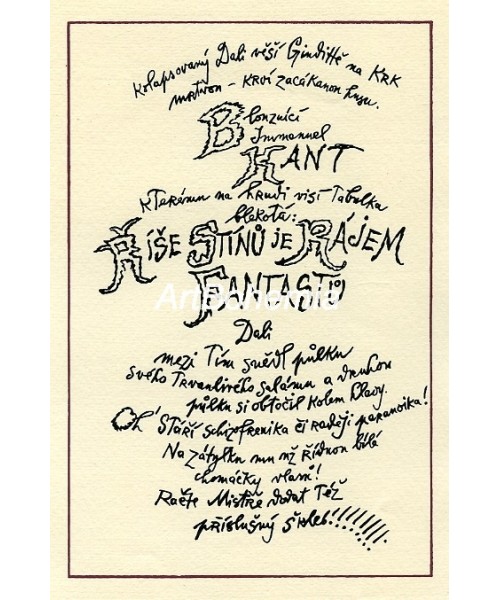 Kolapsovaný Dali věší Gindittě na KRK
mrtvon - krví zacákanon husu.
Blonznící
Immanuel
KANT
kterémn na hrudi visí Tabulka
blekotá:
ŘÍŠE STÍNŮ JE RÁJEM
FANTASTŮ
ArtBohemia
Dali
mezi Tím snědl půlku
svého Trvanlivého salámu a druhon
půlku si obtočil kolem hlavy.
Oh' stáří schizofrenika či raději paranoika!
Na zátylku mu už řídnon bílé
chomáčky vlasů!
Račte Mistře dodat Též
příslušný škleb!!!!!!!!